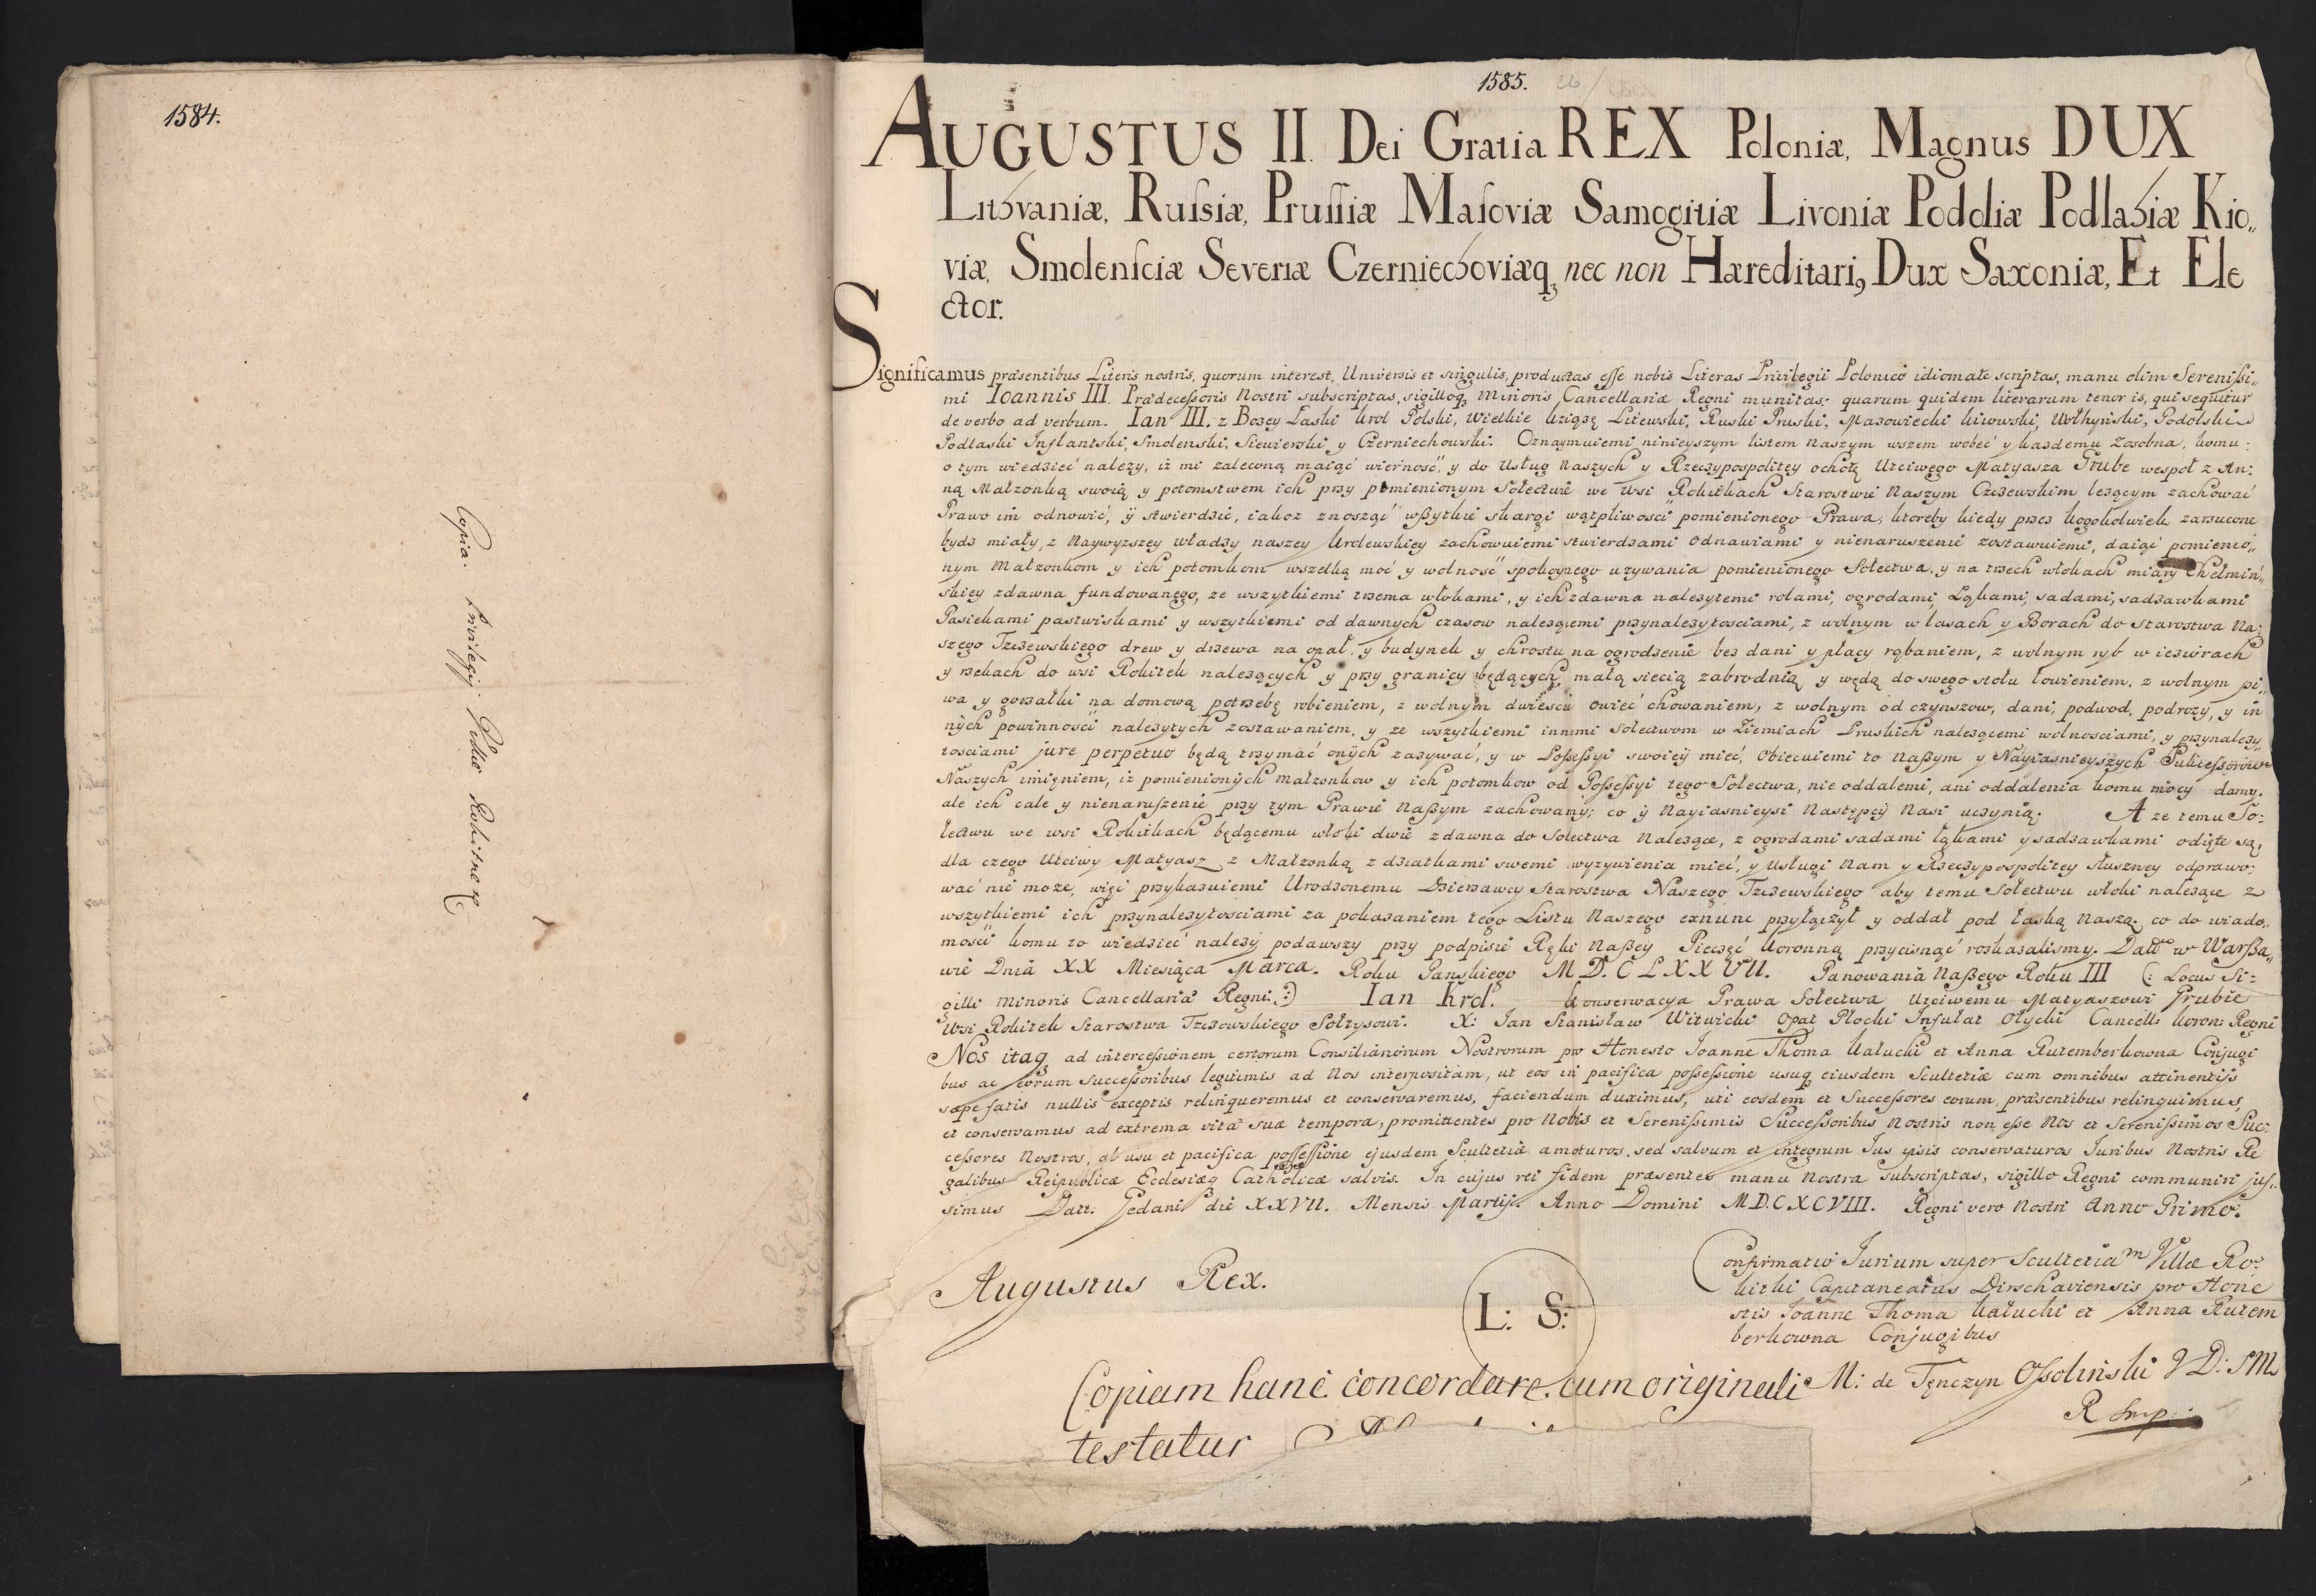 1584.
Copia. Privilegij. Villæ Rokitnensis
1585.
AUGUSTUS II. Dei Gratia REX Poloniæ, Magnus DUX
Lithvaniæ, Rufsiæ, Pruſſiæ Maſoviæ Samogitiæ Livoniæ Podoliæ Podlahiæ Kio„
viæ, Smolenſciæ Severiæ Czerniechoviæq₃ nec non Hæreditari9 Dux Saxoniæ, Et Ele
ctor.
Significamus præsentibus Literis nostris, quorum interest, Universis et singulis, productas eſse nobis Literas Privilegii Polonico idiomate scriptas, manu olim Sereniſsi„
mi Ioannis III. Prædeceſsoris Nostri subscriptas, sigilloq₃ Minoris Cancellariæ Regni munitas: quarum quidem literarum tenor is, qui sequitur
de verbo ad verbum. Ian III. z Bozey Łaski Krol Polski, Wielkie Xiąże Litewski, Ruski Pruski, Mazowiecki Kiiowski, Wołhyński, Podolski
Podlaski Inflantski, Smolenski, Siewierski y Czerniechowski. Oznaymuiemi ninieyszym listem naszym wszem wobec y kazdemu zosobna, komu:
o tym wiedzieć nalezy, iz mi zaleconą maiąć wierność, y do Usług Naszych y Rzeczypospolitey ochotę Uczciwego Matyasza Grube wespoł z An:
ną Małzonką swoią y potomstwem ich przy pomienionym Sołectwie we Wsi Rokitkach Starostwie Naszym Czczewskim lezącym zachować
Prawo im odnowić, ÿ stwierdzić, iakoz znosząć wßytkie skargi wątpliwosci pomienionego Prawa, ktoreby kiedy przez kogokolwiek zarzucone
bydz miały, z Naywyzszey władzy naszey Krolewskiey zachowuiemi stwierdzami odnawiami y nienaruszenie zostawuiemi, daiąć pomienio„
nym Małzonkom y ich potomkom wszelką moć y wolność spokoynego uzywania pomienionego Sołectwa, y na trzech włokach miary Chełmiń„
skiey zdawna fundowanego, ze wszytkiemi trzema włokami, y ich zdawna nalezytemi rolami, ogrodami, Łąkami, sadami, sadzawkami
Pasiekami pastwiskami y wszytkiemi od dawnych czasow nalezącemi przynalezytosciami, z wolnym w lasach y Borach do Starostwa Na:
szego Tczewskiego drew y drzewa na opał y budynek y chrostu na ogrodzenie bez dani y płacy rąbaniem, z wolnym ryb w ieziorach
y rzekach do wsi Rokitek nalezących y przy granicy będących małą siecią zabrodnią y wędą do swego stołu łowieniem, z wolnym pi„
wa y gorzałki na domową potrzebę robieniem, z wolnym dwiescie owieć chowaniem, z wolnym od czynszow, dani, podwod, podrozy, y in
nych powinnosci nalezytych zostawaniem, y ze wszytkiemi innemi sołectwom w Ziemiach Pruskich nalezącemi wolnosciami, y przynalezy„
tosciami jure perpetuo będą trzymać onych zazywać, y w Poſseſsyi swoiey mieć, Obiecuiemi to Naßym y Nayiasnieyszych Sukceſsorow
Naszych imięniem, iz pomienionych małzonkow y ich potomkow od Poſseſsyi tego Sołectwa, nie oddalemi, ani oddalenia komu mocy damy.
ale ich cale y nienaruſzenie przy tym Prawie Naßym zachowamy; co ÿ Nayiasnieysi Następcy Nasi uczynią. A ze temu So:
łectwu we wsi Rokitkach będącemu włoki dwie zdawna do Sołectwa Nalezące, z ogrodami sadami łąkami y sadzawkami odięte są,
dla czego Uczciwy Matyasz z Małzonką z dziatkami swemi wyzywienia mieć, y Usługi Nam y Rzeczypospolitey słuszney odprawo:
wać nie moze, więc przykazuiemi Urodzonemu Dzierzawcy Starostwa Naszego Tczewskiego aby temu Sołectwu włoki nalezące z
wszytkiemi ich przynalezytosciami za pokazaniem tego Listu Naszego exnunc przyłączył y oddał pod łaską Naszą. co do wiado„
mosci komu to wiedzieć nalezy podawszy przy podpisie Ręki Naßey Pieczęć Koronną przycisnąć roskazalismy. Datt w Warßa„
wie Dnia XX Miesiąca Marca. Roku Panskiego M D. C L X X VII. Panowania Naßego Roku III (: Locus Si:
gilli Minoris Cancellariæ Regni :) Ian Krol. Konserwacya Prawa Sołectwa Uczciwemu Matyaszowi Grubie
Wsi Rokitek Starostwa Tczewskiego Sołtysowi. X: Jan Stanisław Witwicki Opat Płocki Infułat Ołycki Cancell: Koron: Regni
Nos itaq₃ ad interceſsionem certorum Consiliariorum Nostrorum pro Honesto Joanne Thoma Kałucki et Anna Rutemberkowna Conjugi
bus ac eorum successoribus legitimis ad Nos interpositam, ut eos in pacifica poſseſsione usuq₃ eiusdem Scultetiæ cum omnibus attinentijs
sæpe fatis nullis exceptis relinqueremus et conservaremus, faciendum duximus, uti eosdem et Succeſsores eorum, præsentibus relinquimus,
et conservamus ad extrema vitæ suæ tempora, promittentes pro Nobis et Sereniſsimis Succeſsoribus Nostris non eſse Nos et Sereniſsimos Suc:
ceſsores Nostros, ab usu et pacifica poſſeſſione ejusdem Scultetiæ amoturos, sed salvum et integrum Jus ipsis conservaturos Juribus Nostris Re
galibus Reipublicæ Ecclesiæq₃ Catholicæ salvis. In cujus rei fidem præsentes manu Nostra subscriptas, sigillo Regni communiri juſ„
simus Datt: Gedani die XXVII. Mensis Martij. Anno Domini M D. C X C VIII. Regni vero Nostri Anno Primo.
Augustus Rex.
L: S:
Confirmatio Jurium super Scultetiam Villæ Ro:
kitki Capitaneatus Dirschaviensis pro Hone
stis Joanne Thoma Kałucki et Anna Rutem
berkowna Conjugibus
Copiam hanc concordare cum originali
testatur
M: de Tęnczyn Oſsoliński